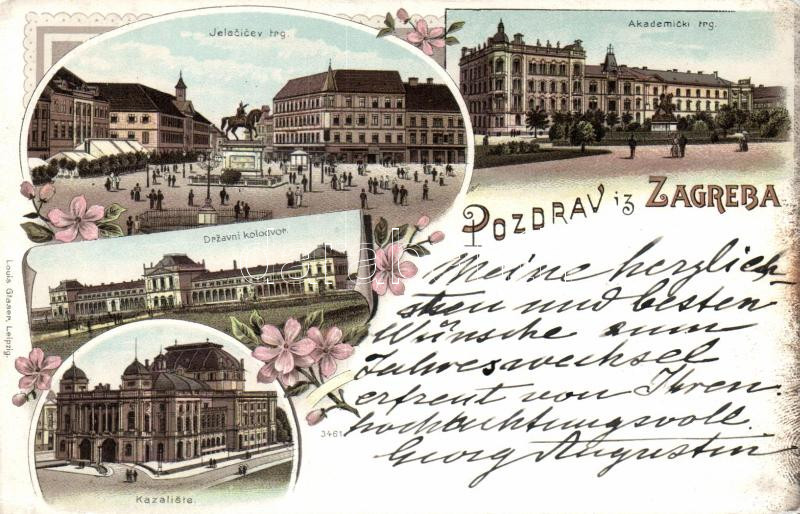 Jelačićev trg.
Akademički trg.
POZDRAV iz ZAGREBA
Državni kolodvor.
Meine herzlich-
sten und besten
Wünsche zum
Jahreswechsel
erfreut von Ihren
hochachtungsvoll
Georg Augustin
Kazalište.
3461
Louis Glaser, Leipzig.